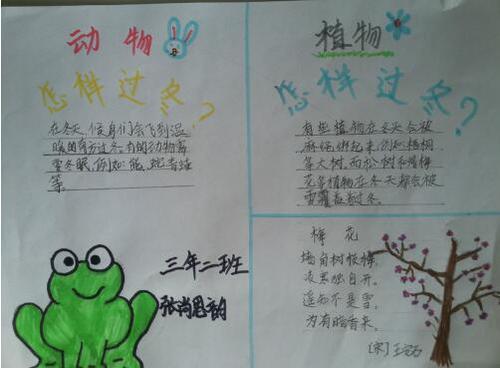 动物
怎样过冬?
在冬天,候鸟们会飞到温
暖的南方过冬,有的动物需
要冬眠,例如:熊、蛇、青蛙
等。
三年二班
张尚恩韵
植物
怎样过冬?
有些植物在冬天会被
麻绳绑起来,例如梧桐
等大树,而松树和腊梅
花等植物在冬天都会被
雪覆盖着过冬。
梅花
墙角数枝梅,
凌寒独自开。
遥知不是雪,
为有暗香来。
[宋]王安石